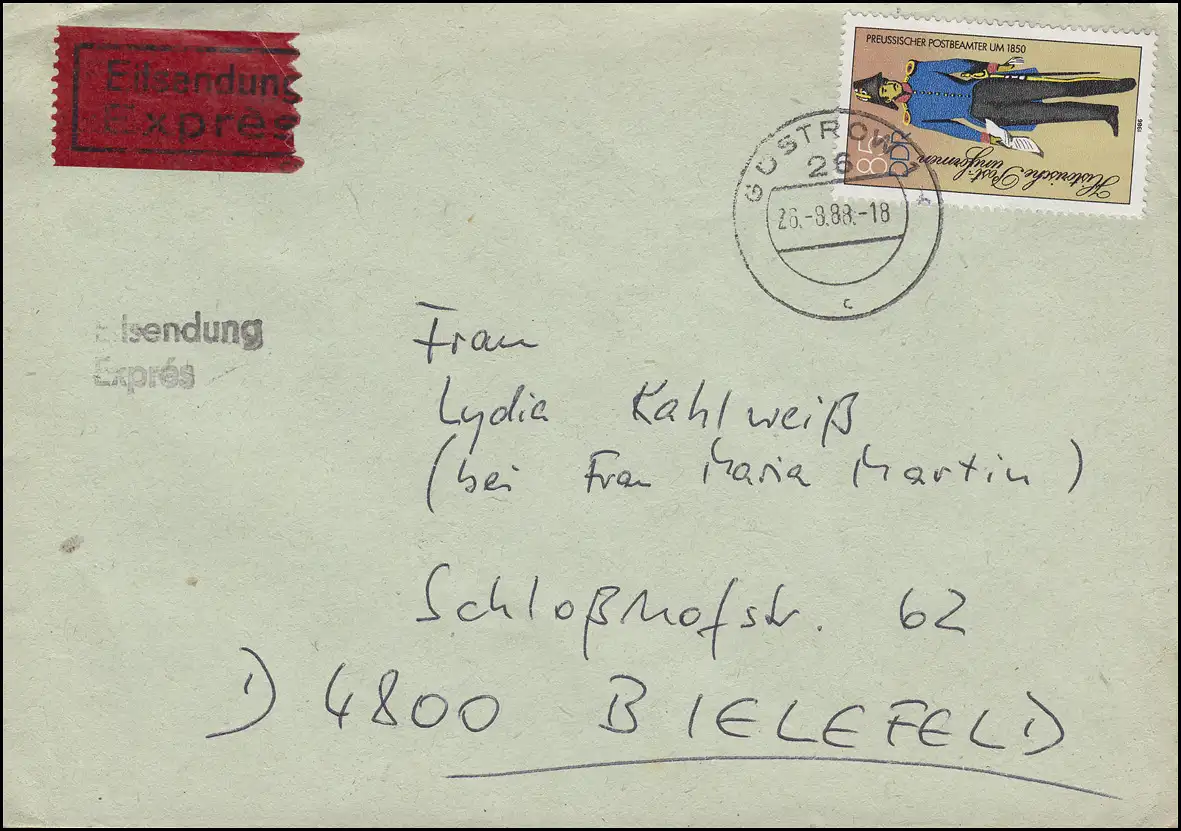 Eilsendung
Exprès
PREUSSISCHER POSTBEAMTER UM 1850
1986
85
DDR
Historische Post-
uniformen
GÜSTROW 1
26
26.-8.88.-18
c
Eilsendung
Exprés
Frau
Lydia Kahlweiß
(bei Frau Maria Martin)
Schloßhofstr. 62
D 4800 BIELEFELD